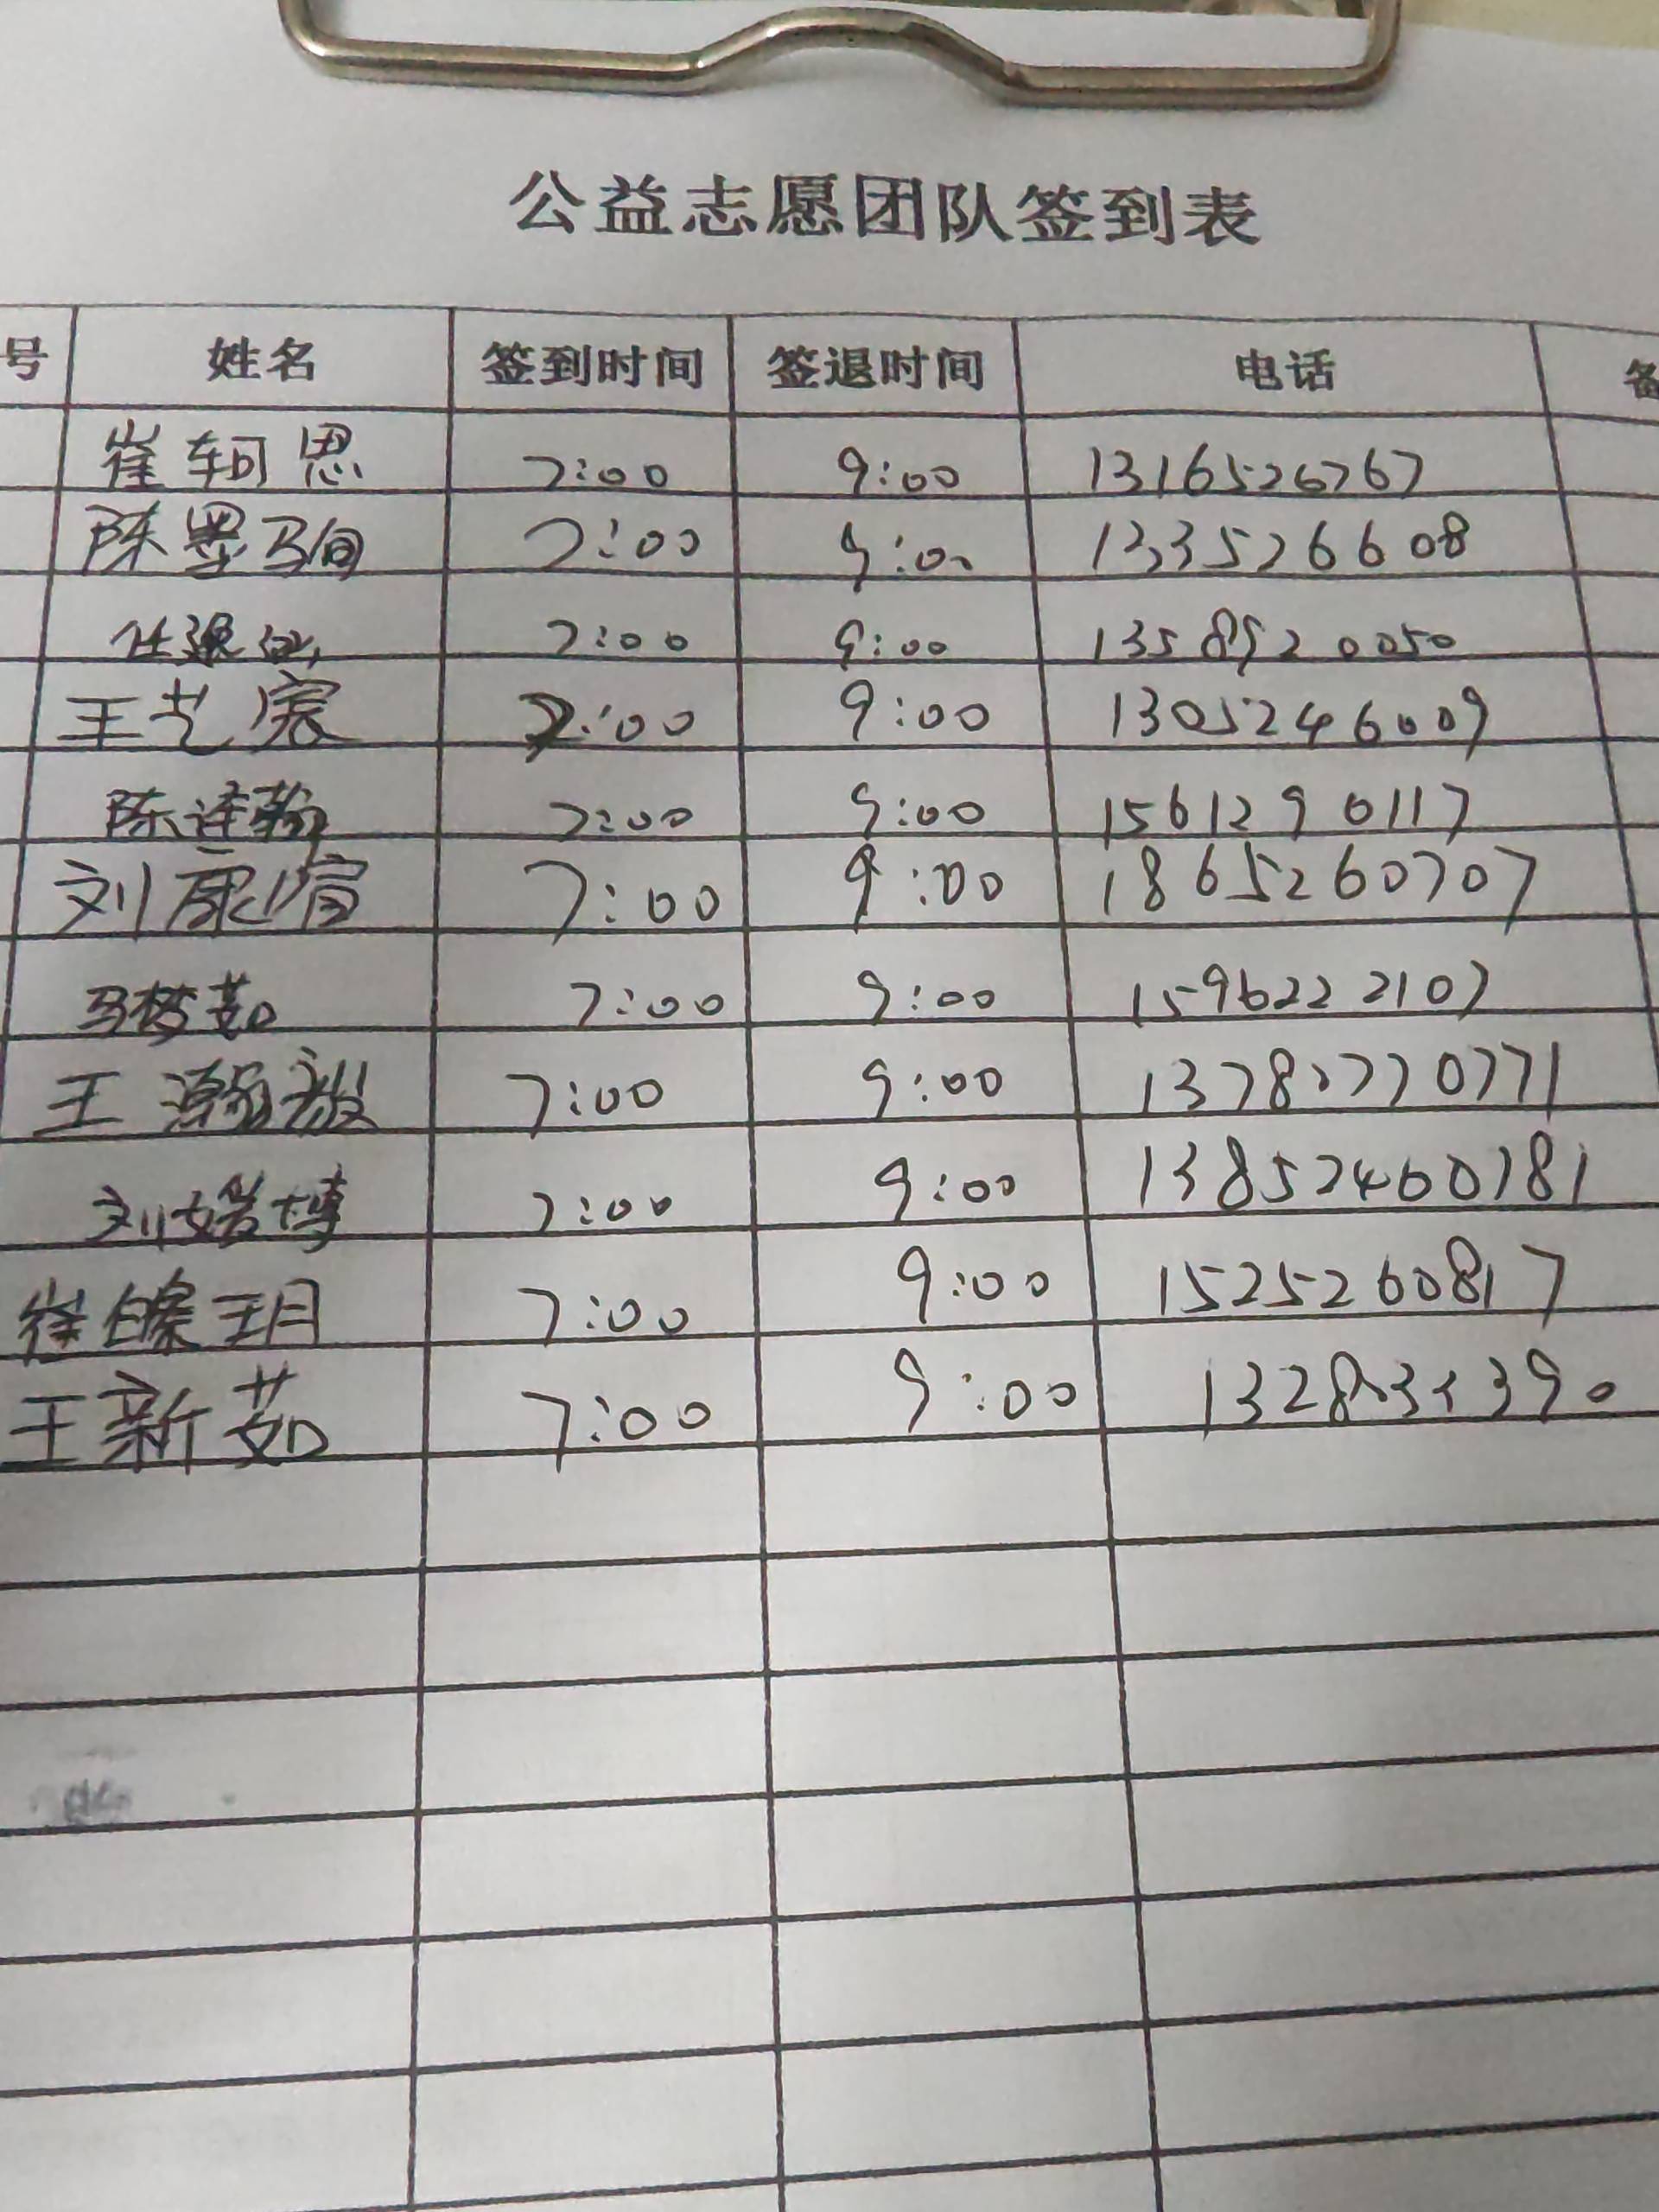 公益志愿团队签到表
号 姓名 签到时间 签退时间 电话 备
崔轲思 7:00 9:00 13165526767
陈墨驹 7:00 9:00 13335526608
7:00 9:00 13589520050
王艺宸 7:00 9:00 13052460009
陈 7:00 9:00 15612990117
刘康煊 7:00 9:00 18652607707
马梦茹 7:00 9:00 15962222107
王瀚毅 7:00 9:00
刘皓博 7:00 9:00 13852460781
崔皞玥 7:00 9:00 15252608817
王新茹 7:00 9:00